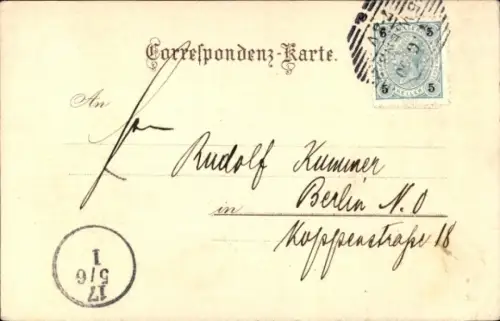 Correspondenz-Karte.
5 5
5 5
An
Rudolf Kummer
in Berlin N.O
Koppenstraße 18
17
5/6
1